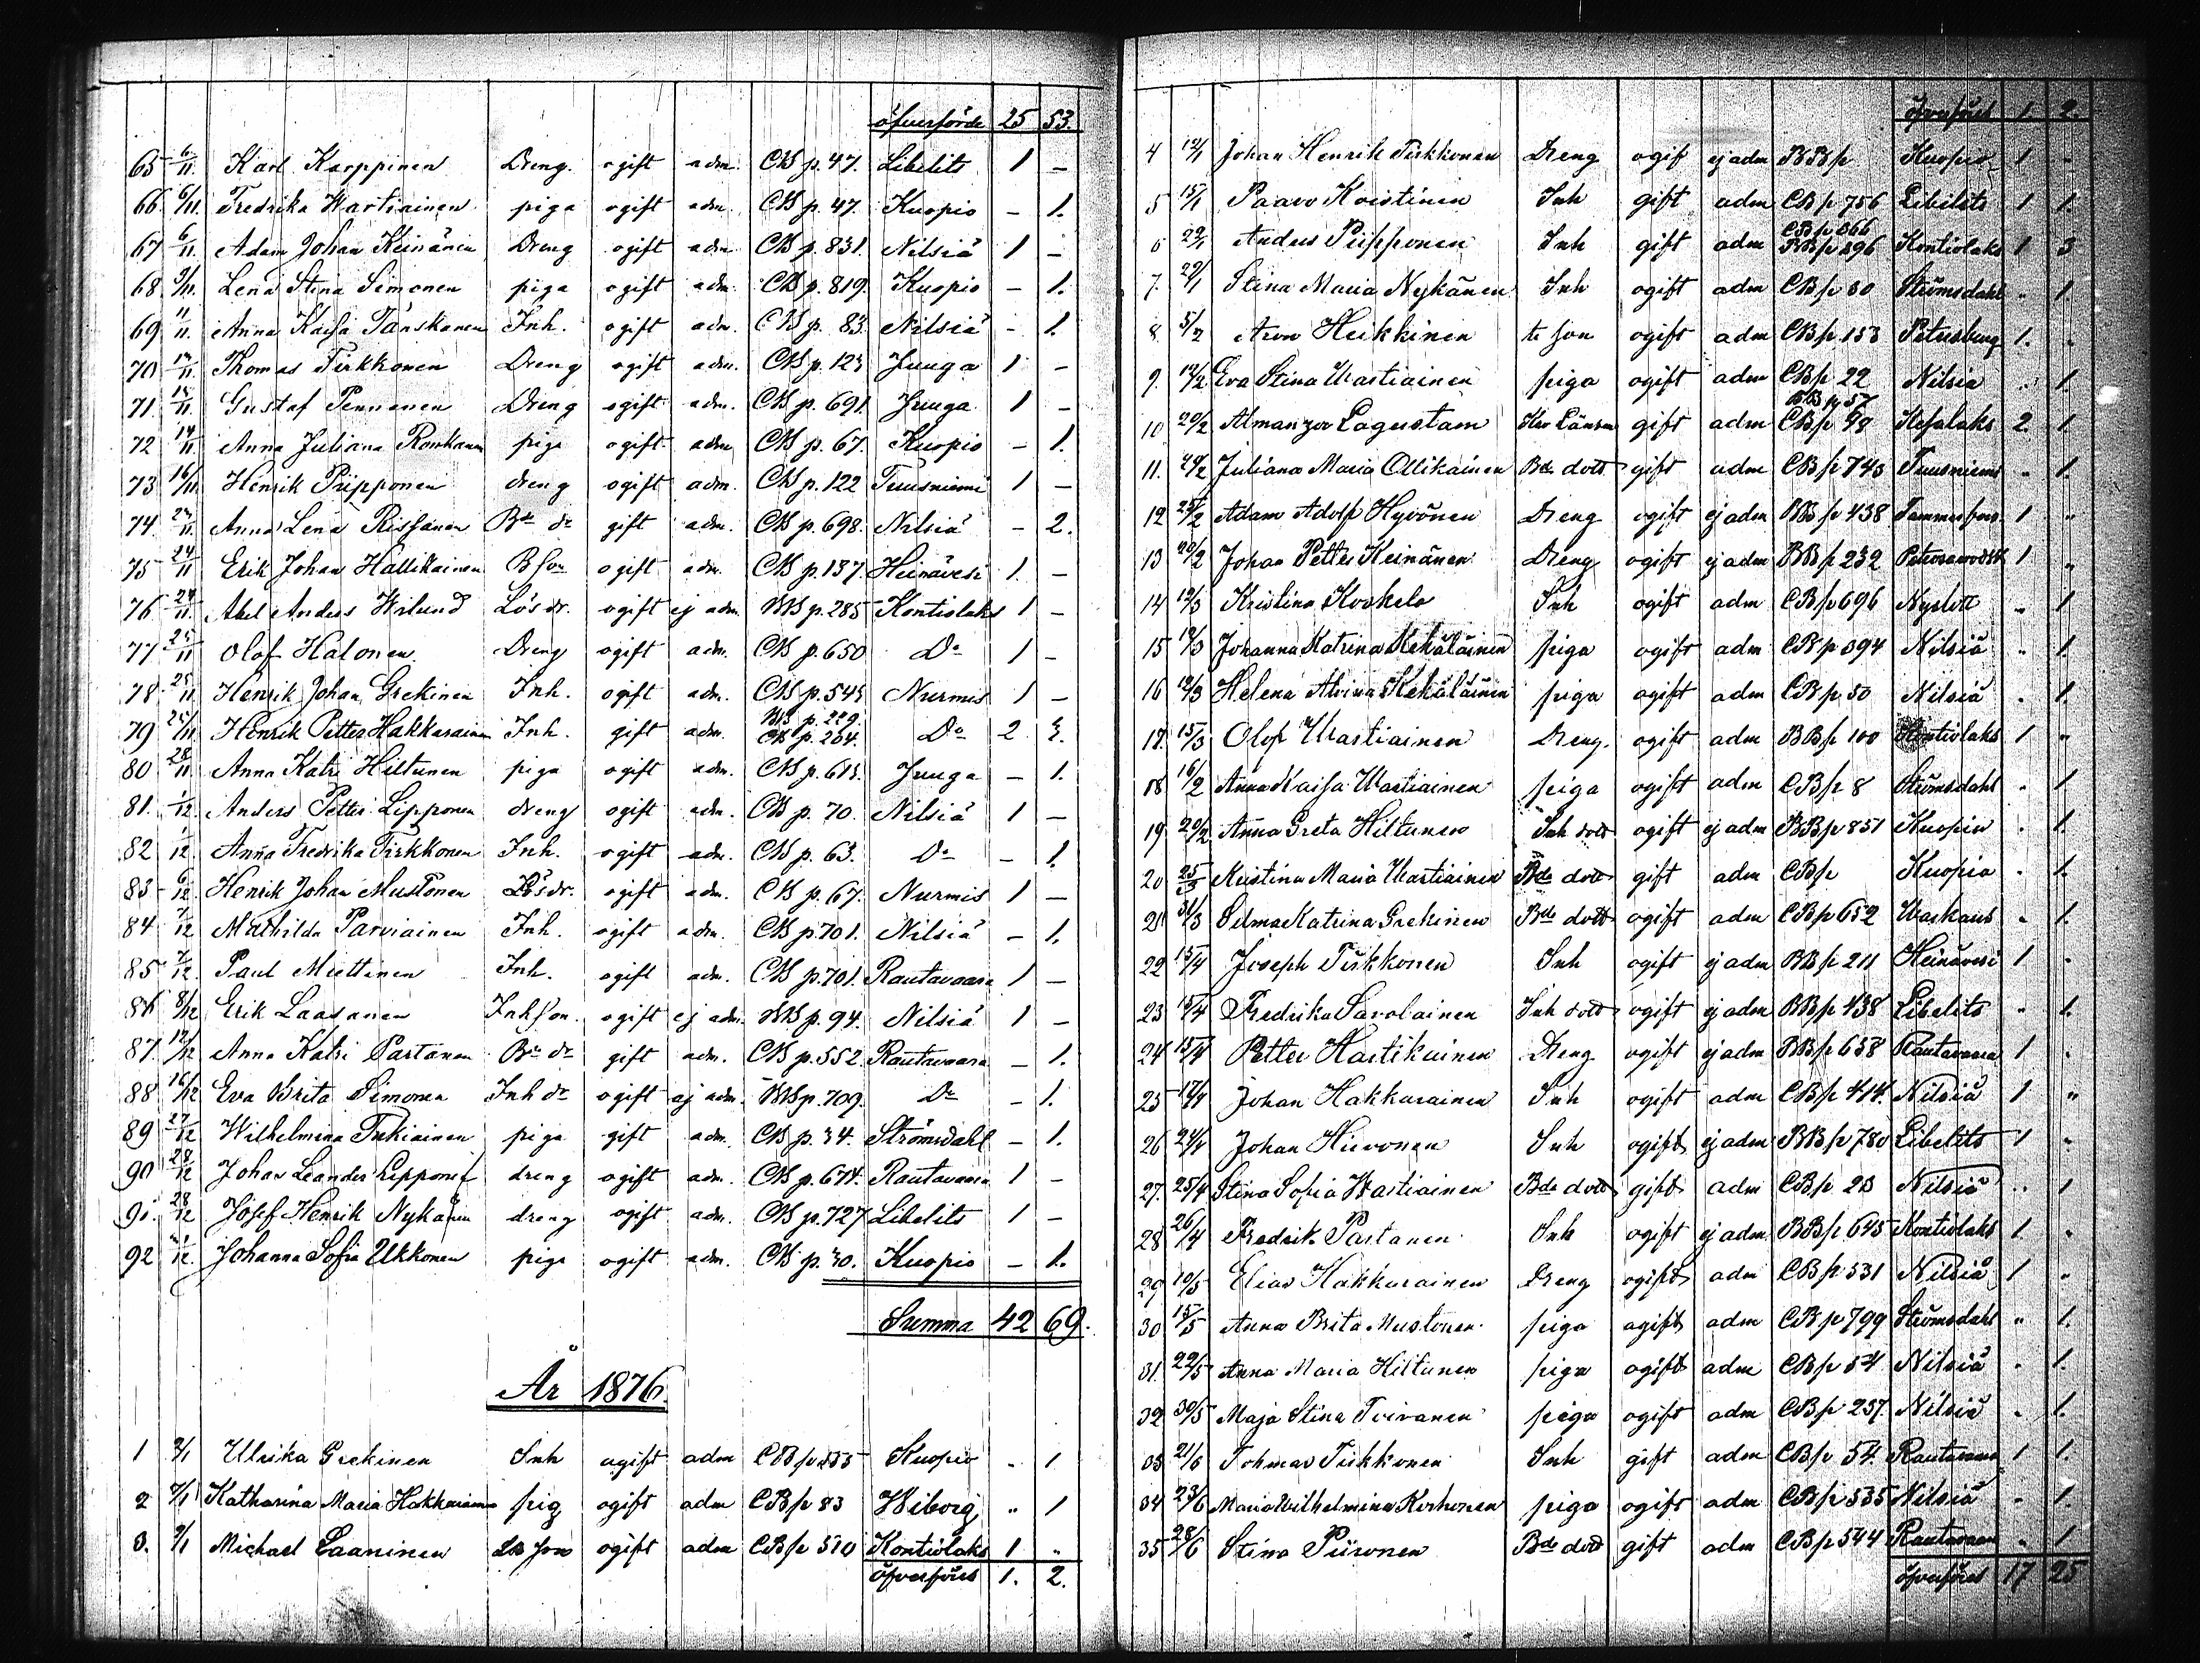 öfverförde 25 53.
65 6/11. Karl Karppinen Dreng. ogift adm. CB p. 47. Libelits 1 –
66. 6/11. Fredrika Wartiainen piga ogift adm. CB p. 47. Kuopio – 1.
67 6/11. Adam Johan Keinänen Dreng ogift adm. CB p. 831. Nilsiä 1 –
68 9/11. Lena Stina Simonen piga ogift adm. CB p. 819. Kuopio – 1.
69 11/11. Anna Kaisa Tanskanen Inh. ogift adm. CB p. 83. Nilsiä – 1.
70 Thomas Tirkkonen Dreng ogift adm. CB p. 123 Juuga 1 –
71 Gustaf Pennanen Dreng ogift adm. CB p. 691 Juuga 1 –
72 14/11 Anna Juliana Ronkanen piga ogift adm. CB p. 67. Kuopio – 1.
73 16/11. Henrik Piipponen dreng ogift adm. CB p. 122 Tuusniemi 1 –
74. Anna Lena Rissanen Bde dr gift adm. CB p. 698. Nilsiä – 2.
75 24/11 Erik Johan Hallikainen B son ogift adm. CB p. 137 Heinävesi 1. –
76 24/11. Abel Anders Wilund Lösdr. ogift ej adm. BB p. 285 Kontiolaks 1 –
77 25/11 Olof Halonen. Dreng ogift adm. CB p. 650 Do 1 –
78. 25/11 Henrik Johan Grekinen Inh. ogift adm. CB p. 545 Nurmis 1 –
79 25/11 Henrik Petter Hakkarainen Inh. gift adm. BB p. 229. CB p. 264. Do 2 3.
80 28/11 Anna Katri Hiltunen piga ogift adm. CB p. 615. Juuga – 1.
81. 1/12. Anders Petter Lipponen dreng ogift adm. CB p. 70. Nilsiä 1 –
82 1/12. Anna Fredrika Tirkkonen Inh. ogift adm. CB p. 63. Do – 1.
83 6/12 Henrik Johan Mustonen Lösdr. ogift adm. CB p. 67. Nurmis 1 –
84 7/12 Mathilda Parviainen Inh. ogift adm. CB p. 701. Nilsiä – 1.
85 7/12. Paul Miettinen Inh. ogift adm. CB p. 701. Rautavaara 1 –
86 8/12 Erik Laasanen Inh son. ogift ej adm. BB p. 94. Nilsiä 1 –
87. 12/12 Anna Katri Partanen Bde dr gift adm. CB p. 552 Rautavaara – 1.
88 16/12 Eva Brita Simonen Inh dr ogift ej adm. BB p. 709. Do – 1.
89 27/12 Wilhelmina Tukiainen piga gift adm. CB p. 34. Strömsdahl – 1.
90 28/12 Johan Leander Lipponen dreng ogift adm. CB p. 674. Rautavaara 1 –
91. 28/12 Josef Henrik Nykänen dreng ogift adm. CB p. 727 Libelits 1 –
92 Johanna Sofia Ukkonen piga ogift adm. CB p. 30. Kuopio – 1.
Summa 42 69.
År 1876.
1 Ulrika Grekinen Inh ogift adm CB p 535 Kuopio „ 1
2 7/1 Katharina Maria Hakkarainen pig ogift adm CB p 83 Wiborg „ 1
3. 9/1 Michael Laaninen son ogift adm CB p 510 Kontiolaks 1 „
öfverföres 1. 2.
öfverföres 1. 2.
4 12/1 Johan Henrik Tirkkonen Dreng ogif ej adm BB p Kuopio 1 „
5 15/1 Paavo Koistinen Inh gift adm CB p 756 Libelits 1 1.
6 22/1 Anders Piipponen Inh gift adm CB p 866 BB p 896 Kontiolaks 1 3
7. 29/1 Stina Maria Nykänen Inh ogift adm CB p 80 Strömsdahl „ 1.
8. 5/2 Aron Heikkinen son ogift adm CB p 153 Petersburg 1. „
9. 12/2 Eva Stina Wartiainen piga ogift adm CB p 22 Nilsiä „ 1.
10 20/2 Almanzor Lagerstam Länsm gift adm BB p 57 CB p 98 Kesälaks 2 1.
11. 20/2 Juliana Maria Ollikainen Bde dott gift adm CB p 745 Tuusniemi „ 1.
12 25/2 Adam Adolf Hyvönen Dreng ogift ej adm BB p 438 Tammerfors 1 „
13 20/2 Johan Petter Keinänen Dreng ogift ej adm BB p 232 Petrosawodsk 1 „
14 12/3 Kristina Koskelo Inh ogift adm CB p 696 Nyslott „ 1
15 12/3 Johanna Katrina Kekäläinen piga ogift adm CB p 894 Nilsiä „ 1.
16 12/3 Helena Alvina Kekäläinen piga ogift adm CB p 50 Nilsiä „ 1.
17. 15/3 Olof Wartiainen Dreng. ogift adm BB p 100 Kontiolaks 1 „
18 16/2 Anna Kaisa Wartiainen piga ogift adm CB p 8 Strömsdahl „ 1
19 20/2 Anna Greta Hiltunen Inh dott ogift ej adm BB p 851 Kuopio „ 1.
20 Kristina Maria Wartiainen Bde dott gift adm CB p Kuopio „ 1.
21 31/3 Selma Katrina Grekinen Bde dott ogift adm CB p 652 Warkaus „ 1.
22 15/4 Joseph Tirkkonen Inh ogift ej adm BB p 211 Heinävesi 1 „
23 15/4 Fredrika Savolainen Inh dott ogift ej adm BB p 438 Libelits „ 1.
24 15/4 Petter Hartikainen Dreng ogift ej adm BB p 658 Rautavaara 1 „
25 17/4 Johan Hakkarainen Inh ogift adm CB p 414. Nilsiä 1 „
26 24/4 Johan Hiivonen Inh ogift ej adm BB p 780 Libelits 1 „
27. 25/4 Stina Sofia Wartiainen Bde dott gift adm CB p 28 Nilsiä „ 1
28 26/4 Fredrik Partanen Inh ogift ej adm BB p 645 Kontiolaks 1 „
29 10/5 Elias Hakkarainen Dreng ogift adm CB p 531 Nilsiä 1 „
30 15/5 Anna Brita Mustonen piga ogift adm CB p 799 Strömsdahl „ 1.
31. 22/5 Anna Maria Hiltunen piga ogift adm CB p 54 Nilsiä „ 1.
32 30/5 Maja Stina Toivanen piga ogift adm CB p 257 Nilsiä „ 1.
33 21/6 Tohmas Tirkkonen Inh gift adm CB p 54 Rautavaara 1 1.
34 23/6 Maria Wilhelmina Korhonen piga ogift adm CB p 535 Nilsiä „ 1.
35 28/6 Stina Piironen Bde dott gift adm CB p 544 Rautavaara „ 1
öfverföres 17 25